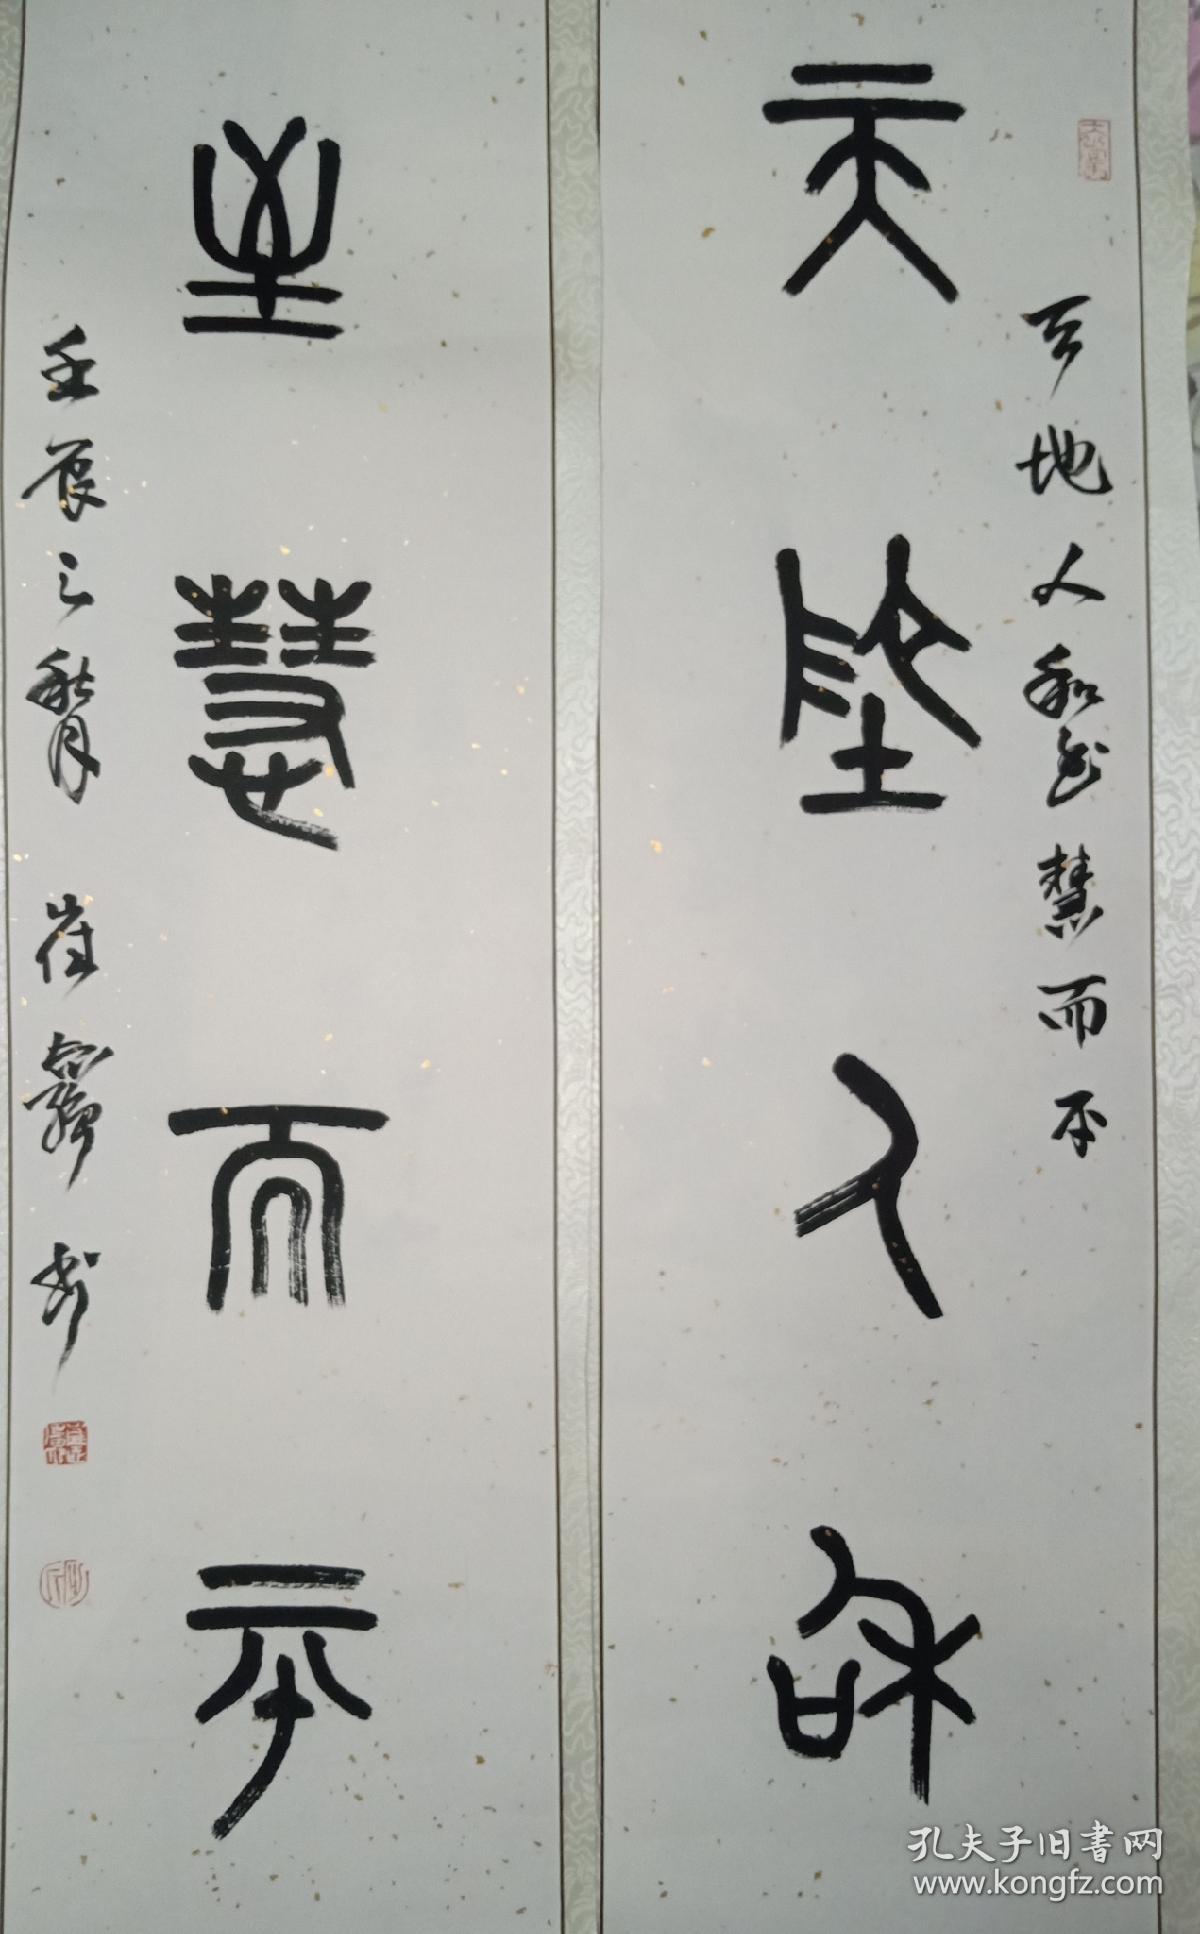 天地人和慧而平
天地人和
慧而平
壬辰之秋月 崔书
孔夫子旧书网
www.kongfz.com